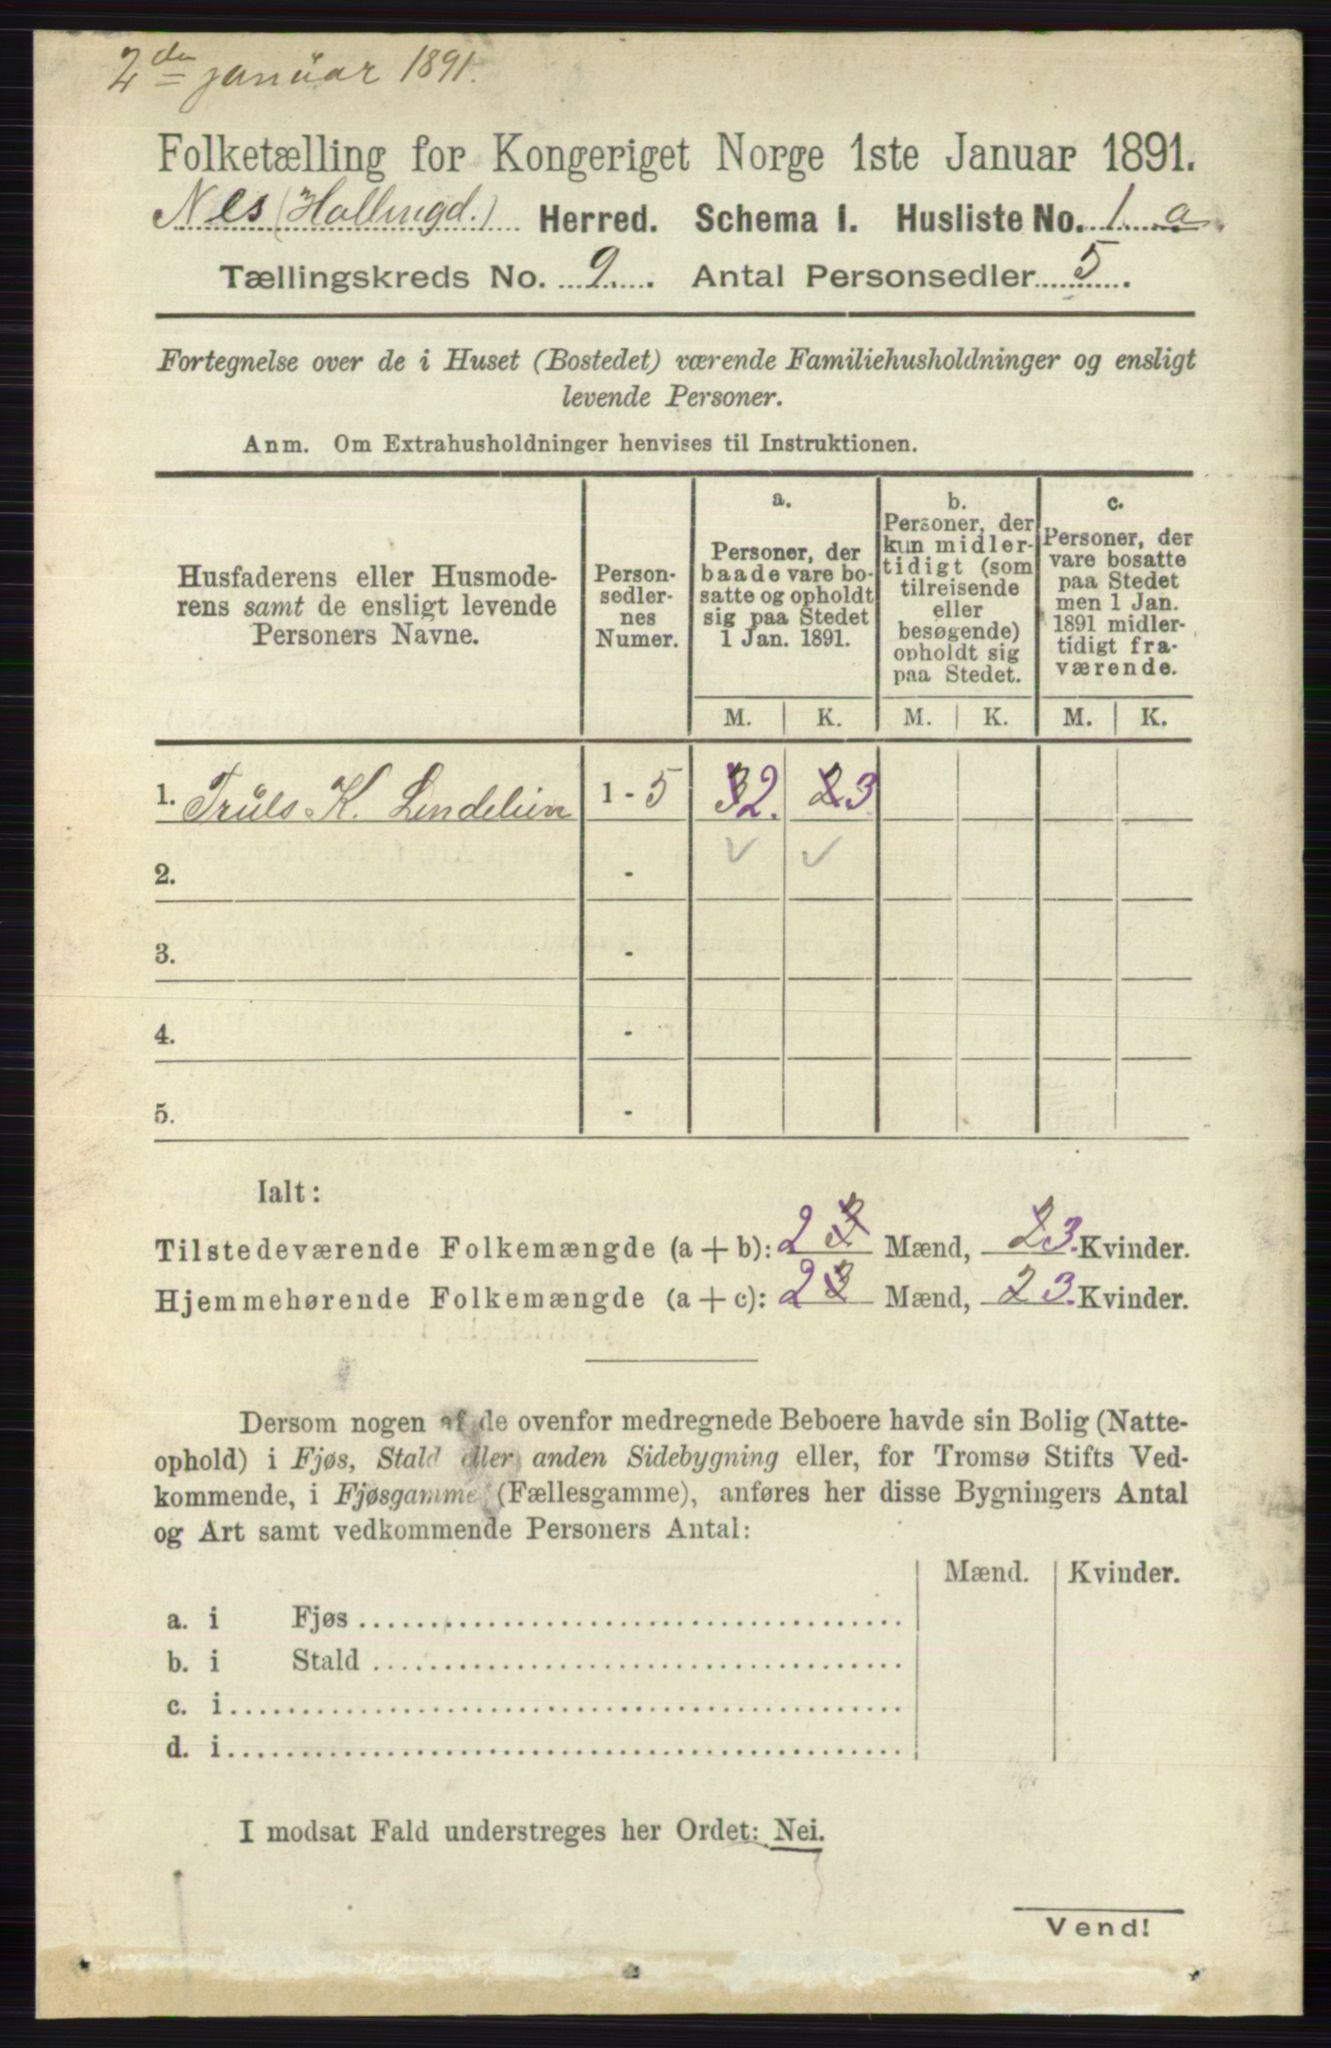 2den januar 1891.
Folketælling for Kongeriget Norge 1ste Januar 1891.
Nes (Hallingd.) Herred. Schema I. Husliste No. 1 a.
Tællingskreds No. 9. Antal Personsedler 5.
Fortegnelse over de i Huset (Bostedet) værende Familiehusholdninger og ensligt
levende Personer.
Anm. Om Extrahusholdninger henvises til Instruktionen.
Husfaderens eller Husmode-
rens samt de ensligt levende
Personers Navne.
Person-
sedler-
nes
Numer.
a.
Personer, der
baade vare bo-
satte og opholdt
sig paa Stedet
1 Jan. 1891.
b.
Personer, der
kun midler-
tidigt (som
tilreisende
eller
besøgende)
opholdt sig
paa Stedet.
c.
Personer, der
vare bosatte
paa Stedet
men 1 Jan.
1891 midler-
tidigt fra-
værende.
M. K. M. K. M. K.
1. Truls K. Lendelien 1 - 5 3 2. 2 3
2. -
3. -
4. -
5. -
Ialt:
Tilstedeværende Folkemængde (a + b): 2 3 Mænd, 2 3. Kvinder.
Hjemmehørende Folkemængde (a + c): 2 3 Mænd, 2 3. Kvinder.
Dersom nogen af de ovenfor medregnede Beboere havde sin Bolig (Natte-
ophold) i Fjøs, Stald eller anden Sidebygning eller, for Tromsø Stifts Ved-
kommende, i Fjøsgamme (Fællesgamme), anføres her disse Bygningers Antal
og Art samt vedkommende Personers Antal:
Mænd. Kvinder.
a. i Fjøs
b. i Stald
c. i
d. i
I modsat Fald understreges her Ordet: Nei.
Vend!